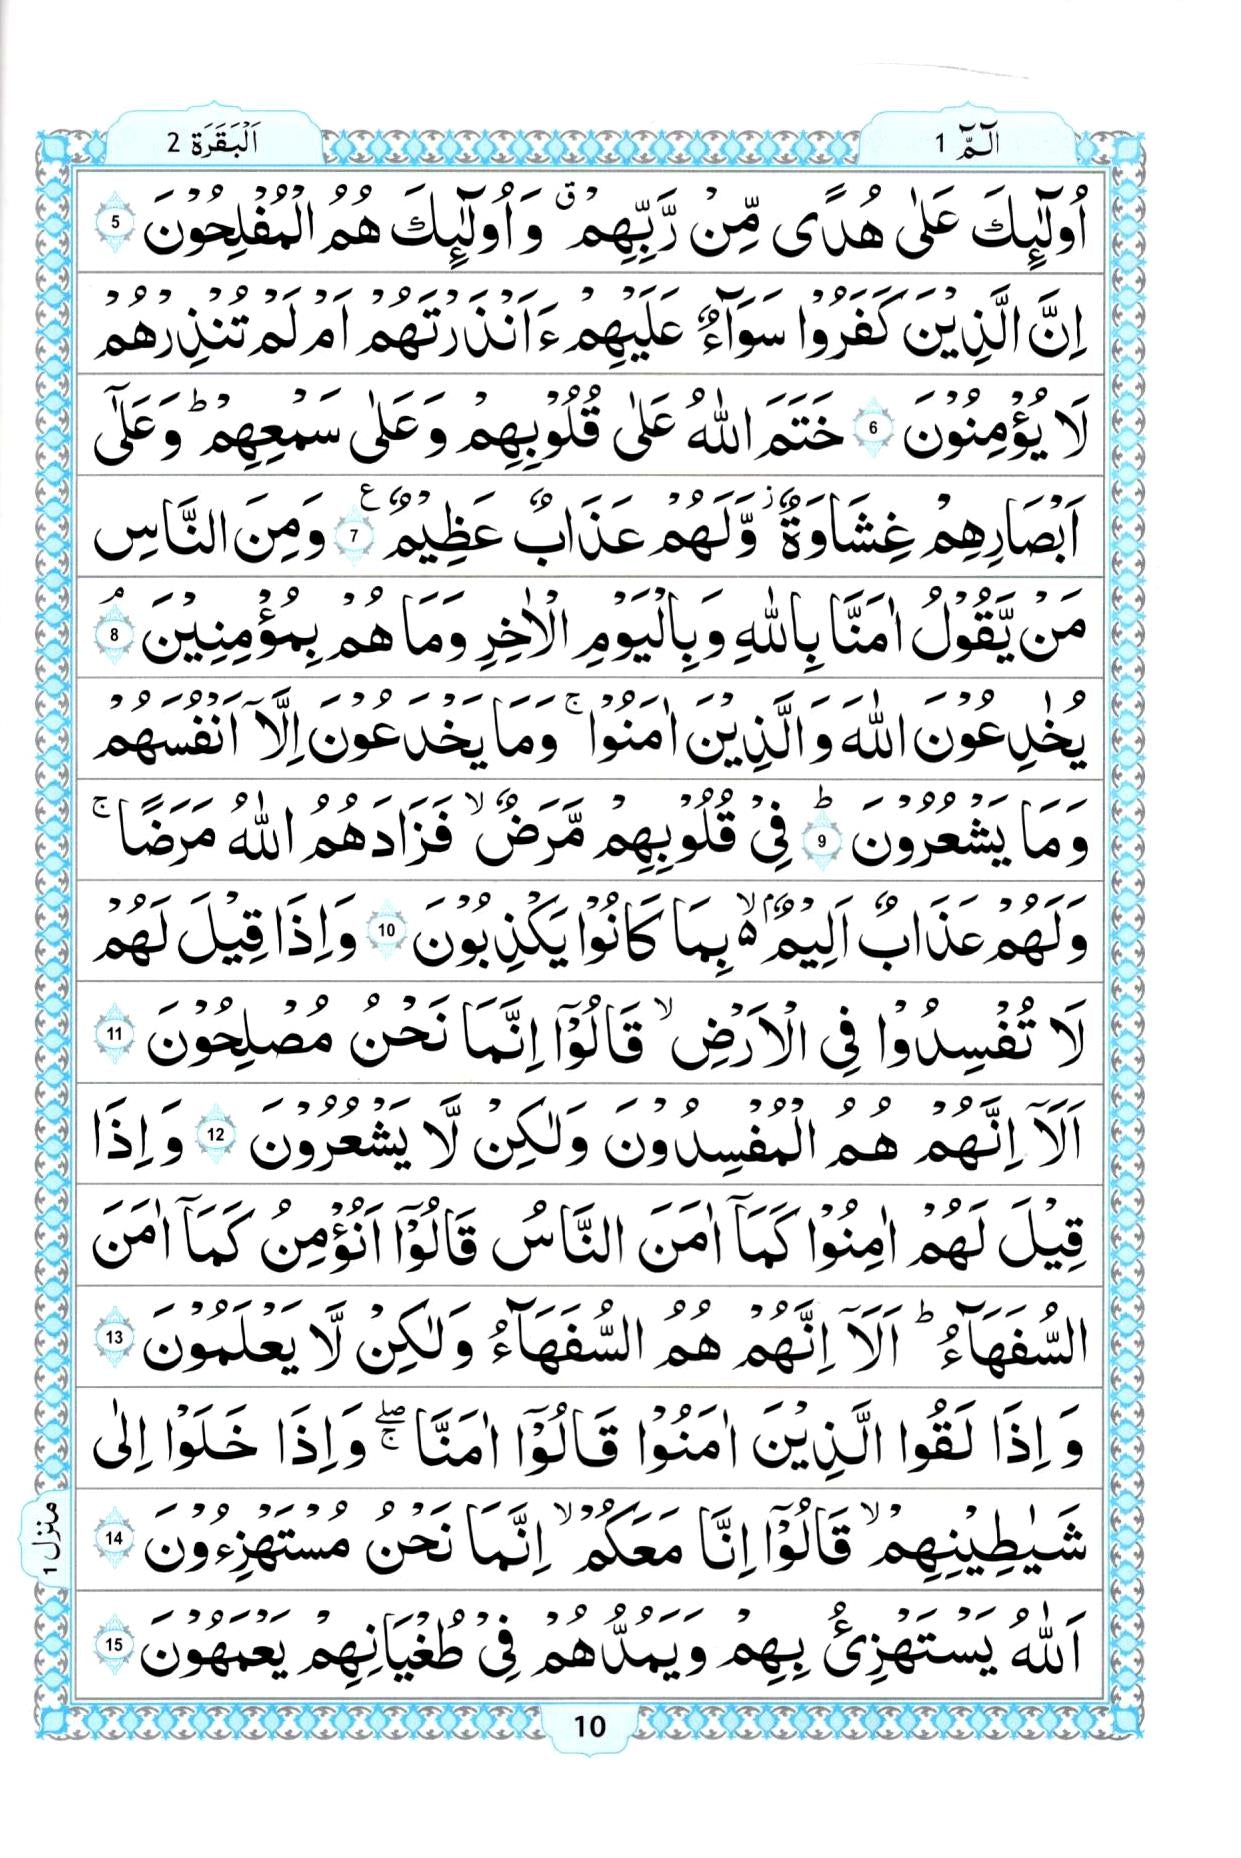 الٓمّٓ 1
اَلْبَقَرَة 2
اُولٰٓئِكَ عَلٰى هُدًى مِّنْ رَّبِّهِمْ ۗ وَاُولٰٓئِكَ هُمُ الْمُفْلِحُوْنَ 5
اِنَّ الَّذِيْنَ كَفَرُوْا سَوَآءٌ عَلَيْهِمْ ءَاَنْذَرْتَهُمْ اَمْ لَمْ تُنْذِرْهُمْ
لَا يُؤْمِنُوْنَ 6 خَتَمَ اللّٰهُ عَلٰى قُلُوْبِهِمْ وَعَلٰى سَمْعِهِمْ ؕ وَعَلٰٓى
اَبْصَارِهِمْ غِشَاوَةٌ ؗ وَّلَهُمْ عَذَابٌ عَظِيْمٌ 7 ع وَمِنَ النَّاسِ
مَنْ يَّقُوْلُ اٰمَنَّا بِاللّٰهِ وَبِالْيَوْمِ الْاٰخِرِ وَمَا هُمْ بِمُؤْمِنِيْنَ ۘ 8
يُخٰدِعُوْنَ اللّٰهَ وَالَّذِيْنَ اٰمَنُوْا ۚ وَمَا يَخْدَعُوْنَ اِلَّاۤ اَنْفُسَهُمْ
وَمَا يَشْعُرُوْنَ ؕ 9 فِيْ قُلُوْبِهِمْ مَّرَضٌ ۙ فَزَادَهُمُ اللّٰهُ مَرَضًا ۚ
وَلَهُمْ عَذَابٌ اَلِيْمٌۢ ۙ۬ بِمَا كَانُوْا يَكْذِبُوْنَ 10 وَاِذَا قِيْلَ لَهُمْ
لَا تُفْسِدُوْا فِى الْاَرْضِ ۙ قَالُوْۤا اِنَّمَا نَحْنُ مُصْلِحُوْنَ 11
اَلَاۤ اِنَّهُمْ هُمُ الْمُفْسِدُوْنَ وَلٰكِنْ لَّا يَشْعُرُوْنَ 12 وَاِذَا
قِيْلَ لَهُمْ اٰمِنُوْا كَمَاۤ اٰمَنَ النَّاسُ قَالُوْۤا اَنُؤْمِنُ كَمَاۤ اٰمَنَ
السُّفَهَآءُ ؕ اَلَاۤ اِنَّهُمْ هُمُ السُّفَهَآءُ وَلٰكِنْ لَّا يَعْلَمُوْنَ 13
وَاِذَا لَقُوا الَّذِيْنَ اٰمَنُوْا قَالُوْۤا اٰمَنَّا ۖۚ وَاِذَا خَلَوْا اِلٰى
شَيٰطِيْنِهِمْ ۙ قَالُوْۤا اِنَّا مَعَكُمْ ۙ اِنَّمَا نَحْنُ مُسْتَهْزِءُوْنَ 14
اَللّٰهُ يَسْتَهْزِئُ بِهِمْ وَيَمُدُّهُمْ فِيْ طُغْيَانِهِمْ يَعْمَهُوْنَ 15
منزل 1
10